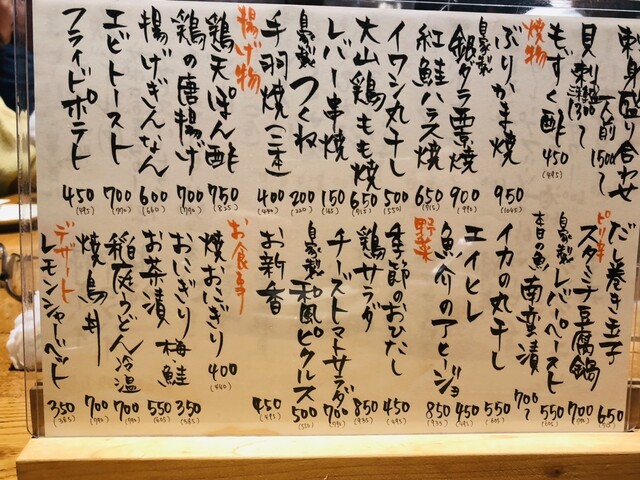 刺身盛り合わせ
一人前 1500〜
貝刺
もずく酢 450 (495)
焼物
ぶりかま焼 950 (1045)
自家製 銀ダラ西京焼 900 (990)
紅鮭ハラス焼 650 (715)
イワシ丸干し 500 (550)
大山鶏もも焼 650 (715)
レバー串焼 150 (165)
自家製 つくね 200 (220)
手羽焼(二本) 400 (440)
揚げ物
鶏天ぽん酢 750 (825)
鶏の唐揚げ 700 (770)
揚げぎんなん 600 (660)
エビトースト 700 (770)
フライドポテト 450 (495)
だし巻き玉子 650 (715)
ピリ辛 スタミナ豆腐鍋 700 (770)
自家製 レバーペースト 550 (605)
本日の魚 南蛮漬 700〜
イカの丸干し 550 (605)
エイヒレ 450 (495)
魚介のアヒージョ 850 (935)
野菜
季節のおひたし 450 (495)
鶏サラダ 850 (935)
チーズトマトサラダ 700 (770)
自家製 和風ピクルス 500 (550)
お新香 450 (495)
お食事
焼おにぎり 400 (440)
おにぎり 梅 鮭 350 (385)
お茶漬 550 (605)
稲庭うどん 冷 温 700 (770)
焼鳥丼 700 (770)
デザート
レモンシャーベット 350 (385)